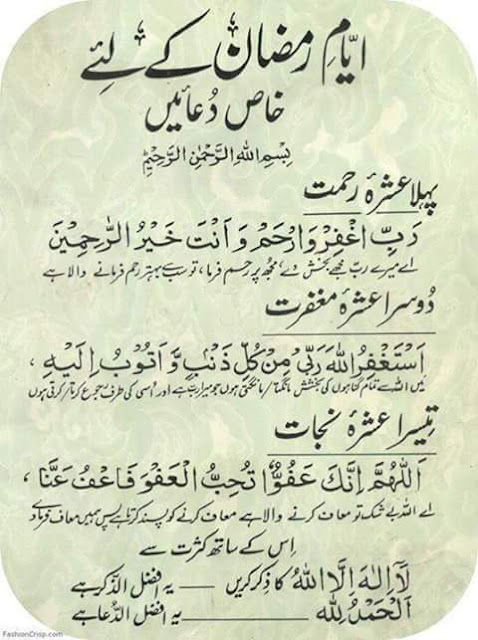 ایّامِ رمضان کے لئے
خاص دُعائیں
بِسْمِ اللهِ الرَّحْمٰنِ الرَّحِیْمِ
پہلا عشرۂ رحمت
رَبِّ اغْفِرْ وَارْحَمْ وَاَنْتَ خَیْرُ الرّٰحِمِیْنَ
اے میرے رب مجھے بخش دے، مجھ پر رحم فرما، تو سب سے بہتر رحم فرمانے والا ہے
دُوسرا عشرۂ مغفرت
اَسْتَغْفِرُ اللهَ رَبِّیْ مِنْ کُلِّ ذَنْبٍ وَّاَتُوْبُ اِلَیْهِ ،
میں اللہ سے تمام گناہوں کی بخشش مانگتا/مانگتی ہوں جو میرا رب ہے اور اُسی کی طرف رجوع کرتا/کرتی ہوں
تیسرا عشرۂ نجات
اَللّٰهُمَّ اِنَّكَ عَفُوٌّ تُحِبُّ الْعَفْوَ فَاعْفُ عَنَّا ،
اے اللہ بے شک تو معاف کرنے والا ہے معاف کرنے کو پسند کرتا ہے پس ہمیں معاف فرما دے
اِس کے ساتھ کثرت سے
لَآ اِلٰهَ اِلَّا اللهُ کا ذِکر کریں — یہ افضل الذِّکر ہے
اَلْحَمْدُ لِلّٰهِ — یہ افضل الدُّعا ہے
FashionCrisp.com